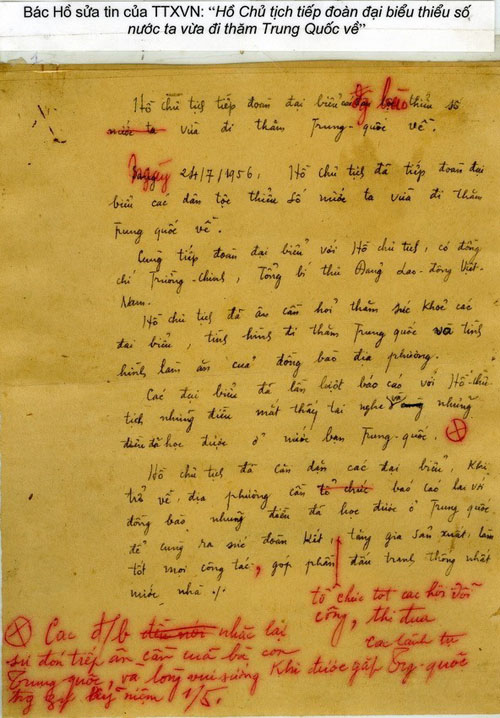 Bác Hồ sửa tin của TTXVN: “Hồ Chủ tịch tiếp đoàn đại biểu thiểu số
nước ta vừa đi thăm Trung Quốc về”
Hồ chủ tịch tiếp đoàn đại biểu thiểu số
nước ta vừa đi thăm Trung-quốc về.
Ngày 24/7/1956, Hồ chủ tịch đã tiếp đoàn đại
biểu các dân tộc thiểu số nước ta vừa đi thăm
Trung quốc về.
Cùng tiếp đoàn đại biểu với Hồ chủ tịch, có đồng
chí Trường-chinh, Tổng bí thư Đảng Lao-động Việt-
Nam.
Hồ chủ tịch đã ân cần hỏi thăm sức khỏe các
đại biểu, tình hình đi thăm Trung quốc và tình
hình làm ăn của đồng bào địa phương.
Các đại biểu đã lần lượt báo cáo với Hồ-chủ
tịch những điều mắt thấy tai nghe và những
điều đã học được ở nước bạn Trung-quốc.
Hồ chủ tịch đã căn dặn các đại biểu, khi
trở về địa phương cần tổ chức báo cáo lại với
đồng bào những điều đã học được ở Trung quốc
để cùng ra sức đoàn kết, tăng gia sản xuất, làm
tốt mọi công tác, góp phần đấu tranh thống nhất
nước nhà ./.
tổ chức tốt các hội đổi
công, thi đua
Các đ/b điều nói nhắc lại
sự đón tiếp ân cần của bà con
các lãnh tụ
Trung quốc, và lòng vui sướng khi được gặp Tr. quốc
kỷ niệm 1/5.